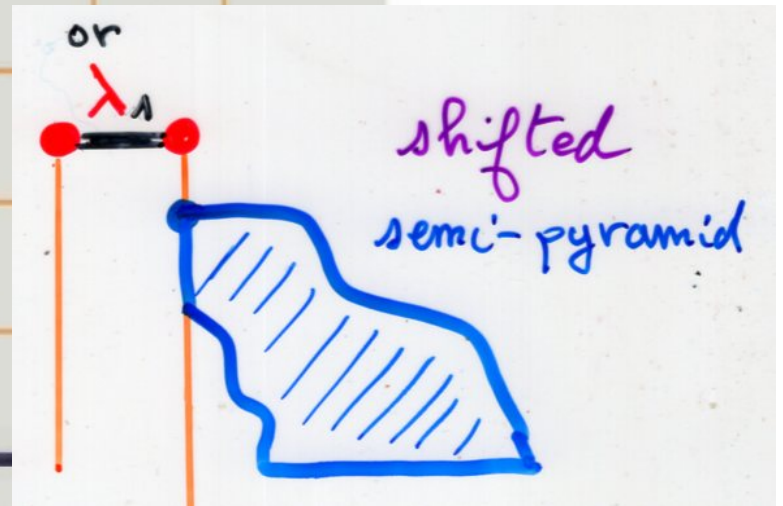 or
λ₁
shifted
semi-pyramid